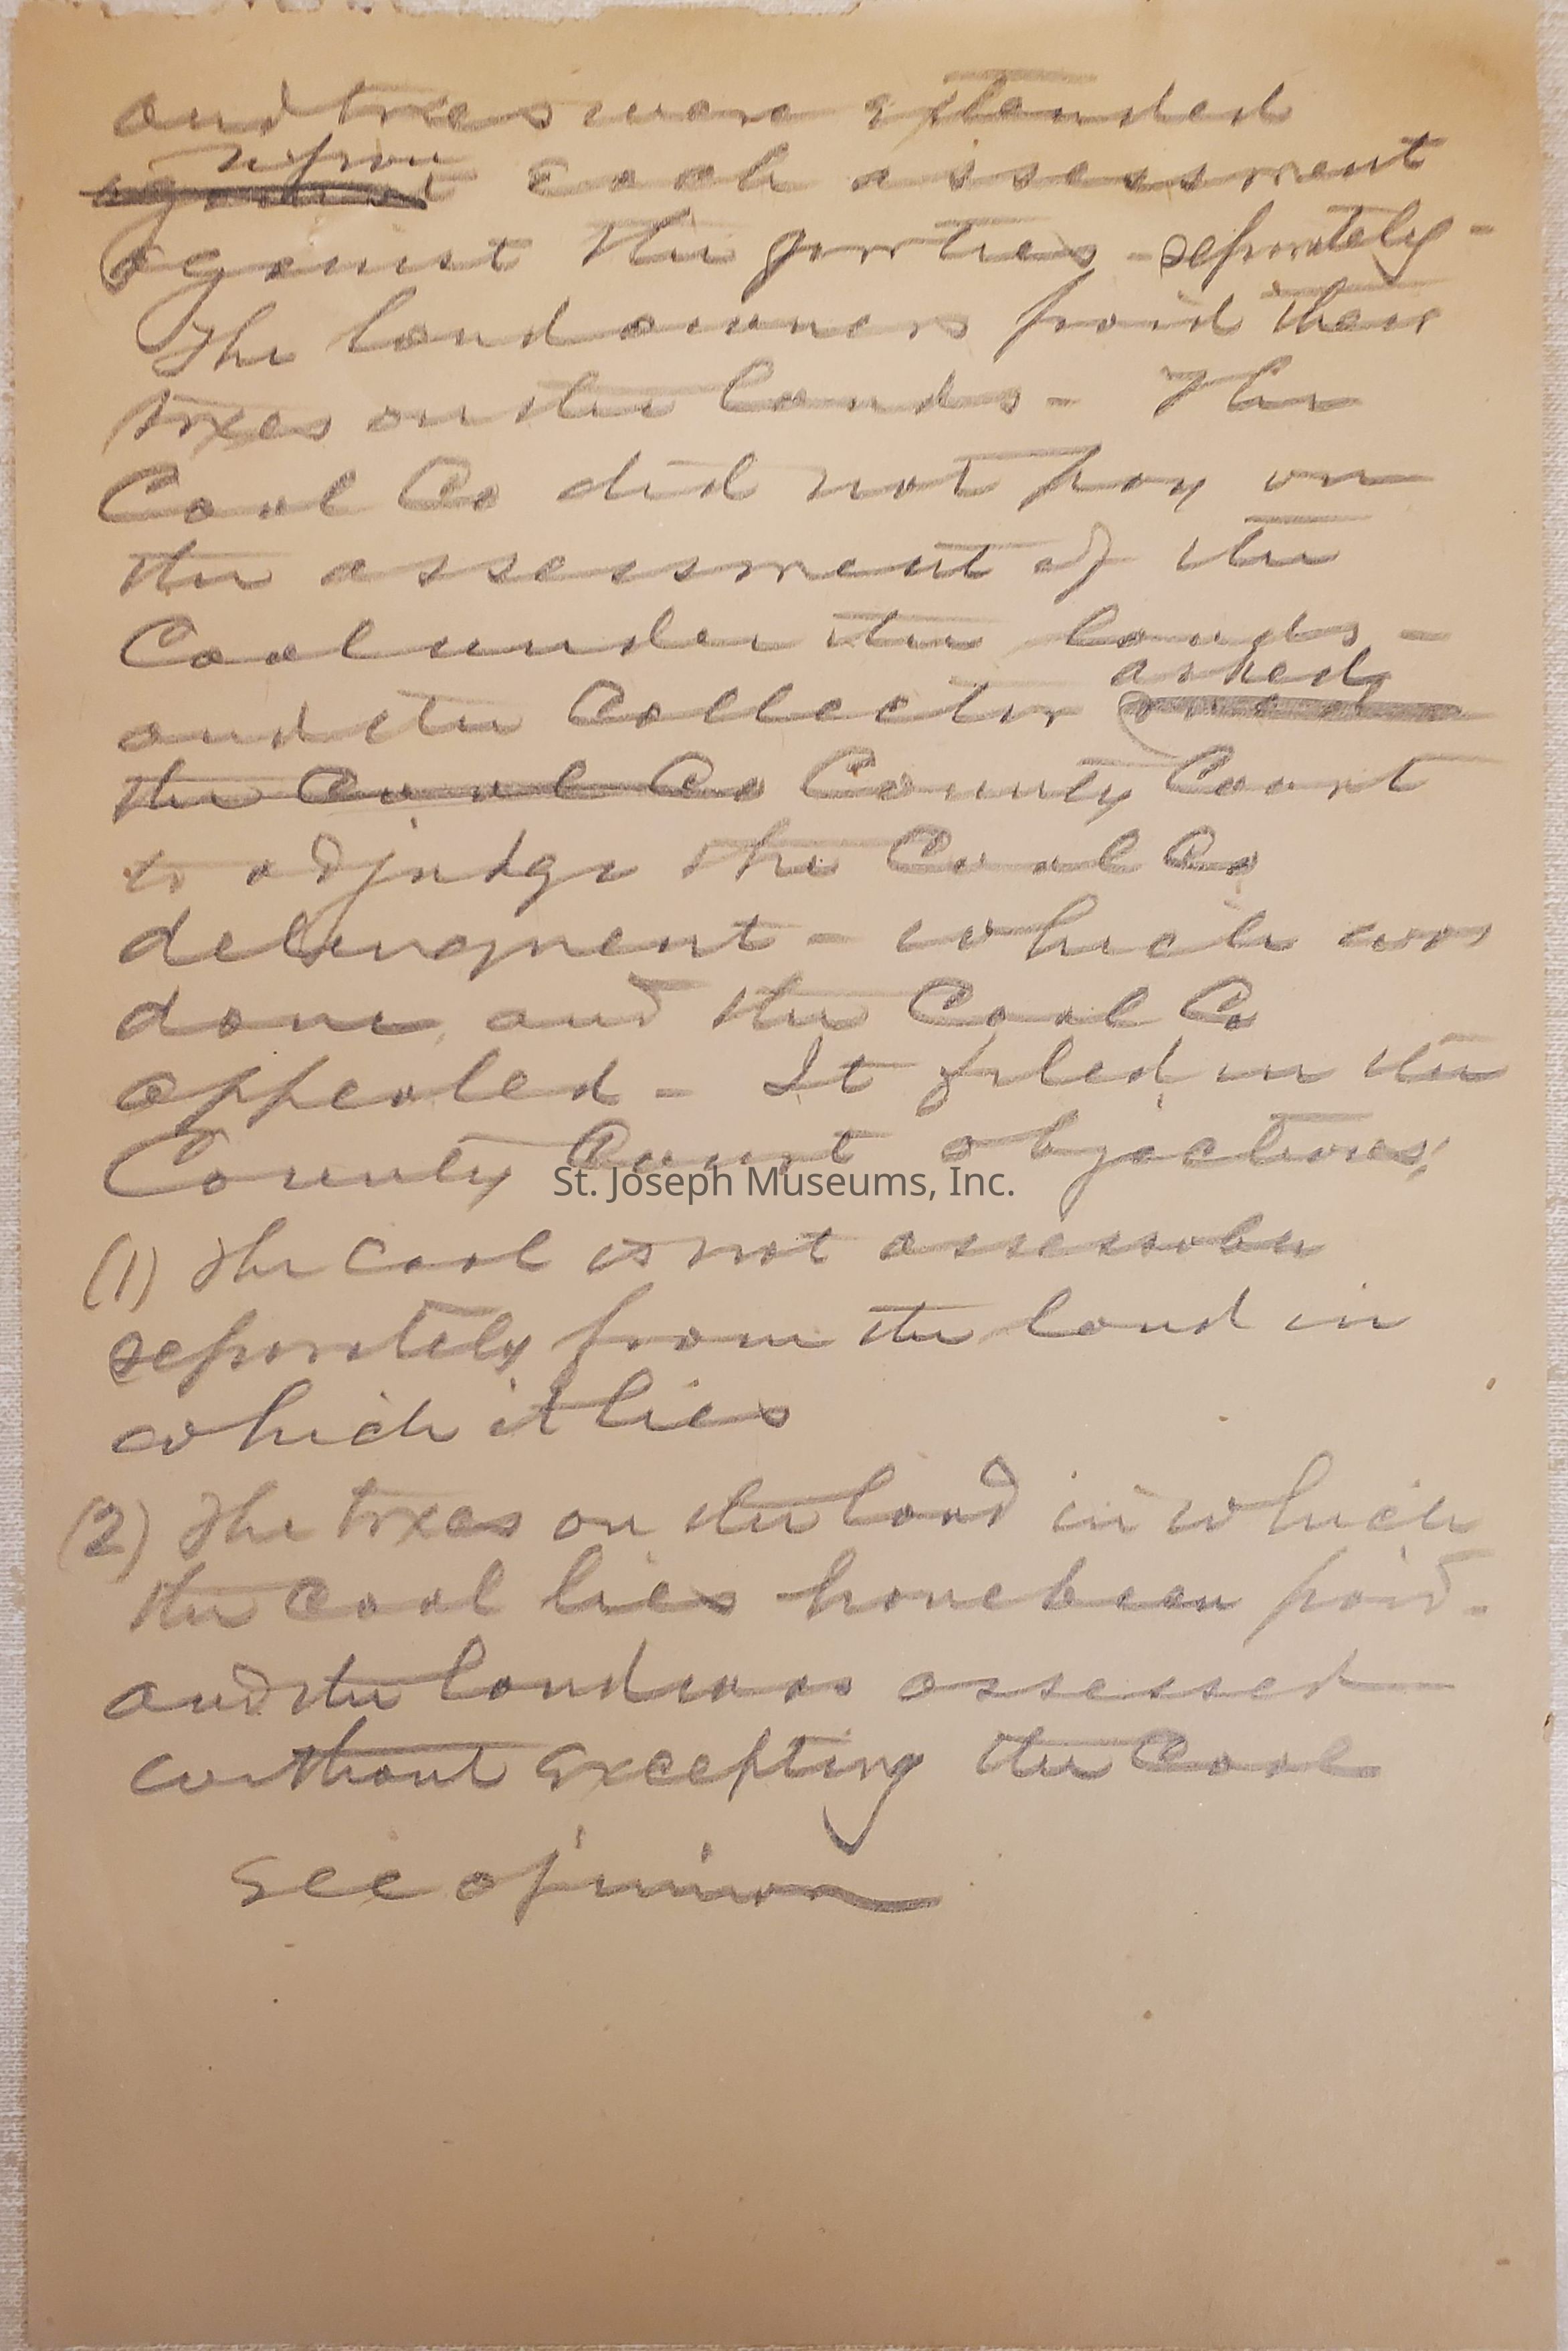 and taxes were extended
upon
against each assessment
against the parties - separately -
The land owners paid their
taxes on the lands - The
Coal Co did not pay on
the assessment of the
Coal under the lands -
asked
and the Collector
the Coal Co County Court
to adjudge the Coal Co
delinquent - which was
done, and the Coal Co
appealed - It filed in the
County Court objections;
St. Joseph Museums, Inc.
(1) The Coal is not assessable
separately from the land in
which it lies
(2) The taxes on the land in which
the Coal lies have been paid -
and the land was assessed
without excepting the Coal
See opinion